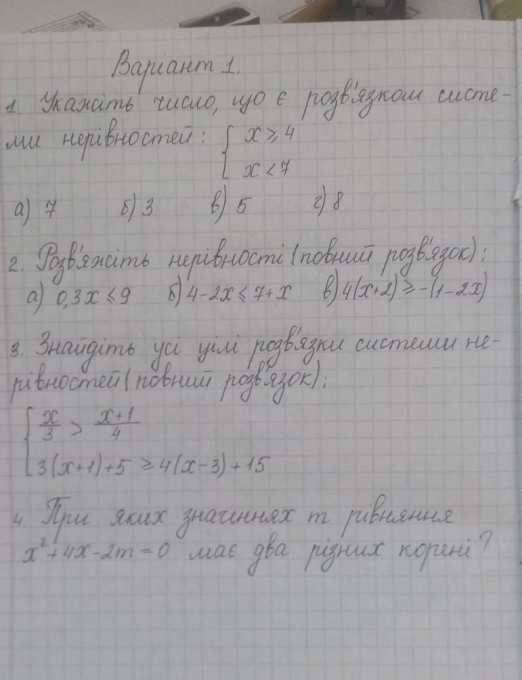 Варіант 1.
1. Укажіть число, що є розв'язком систе-
ми нерівностей: { x ≥ 4
x < 7
а) 7 б) 3 в) 5 г) 8
2. Розв'яжіть нерівності (повний розв'язок):
а) 0,3x ≤ 9 б) 4-2x ≤ 7+x в) 4(x+2) ≥ -(1-2x)
3. Знайдіть усі цілі розв'язки системи не-
рівностей (повний розв'язок):
{ x/3 > x+1/4
3(x+1)+5 ≥ 4(x-3)+15
4. При яких значеннях m рівняння
x²+4x-2m=0 має два різних корені?